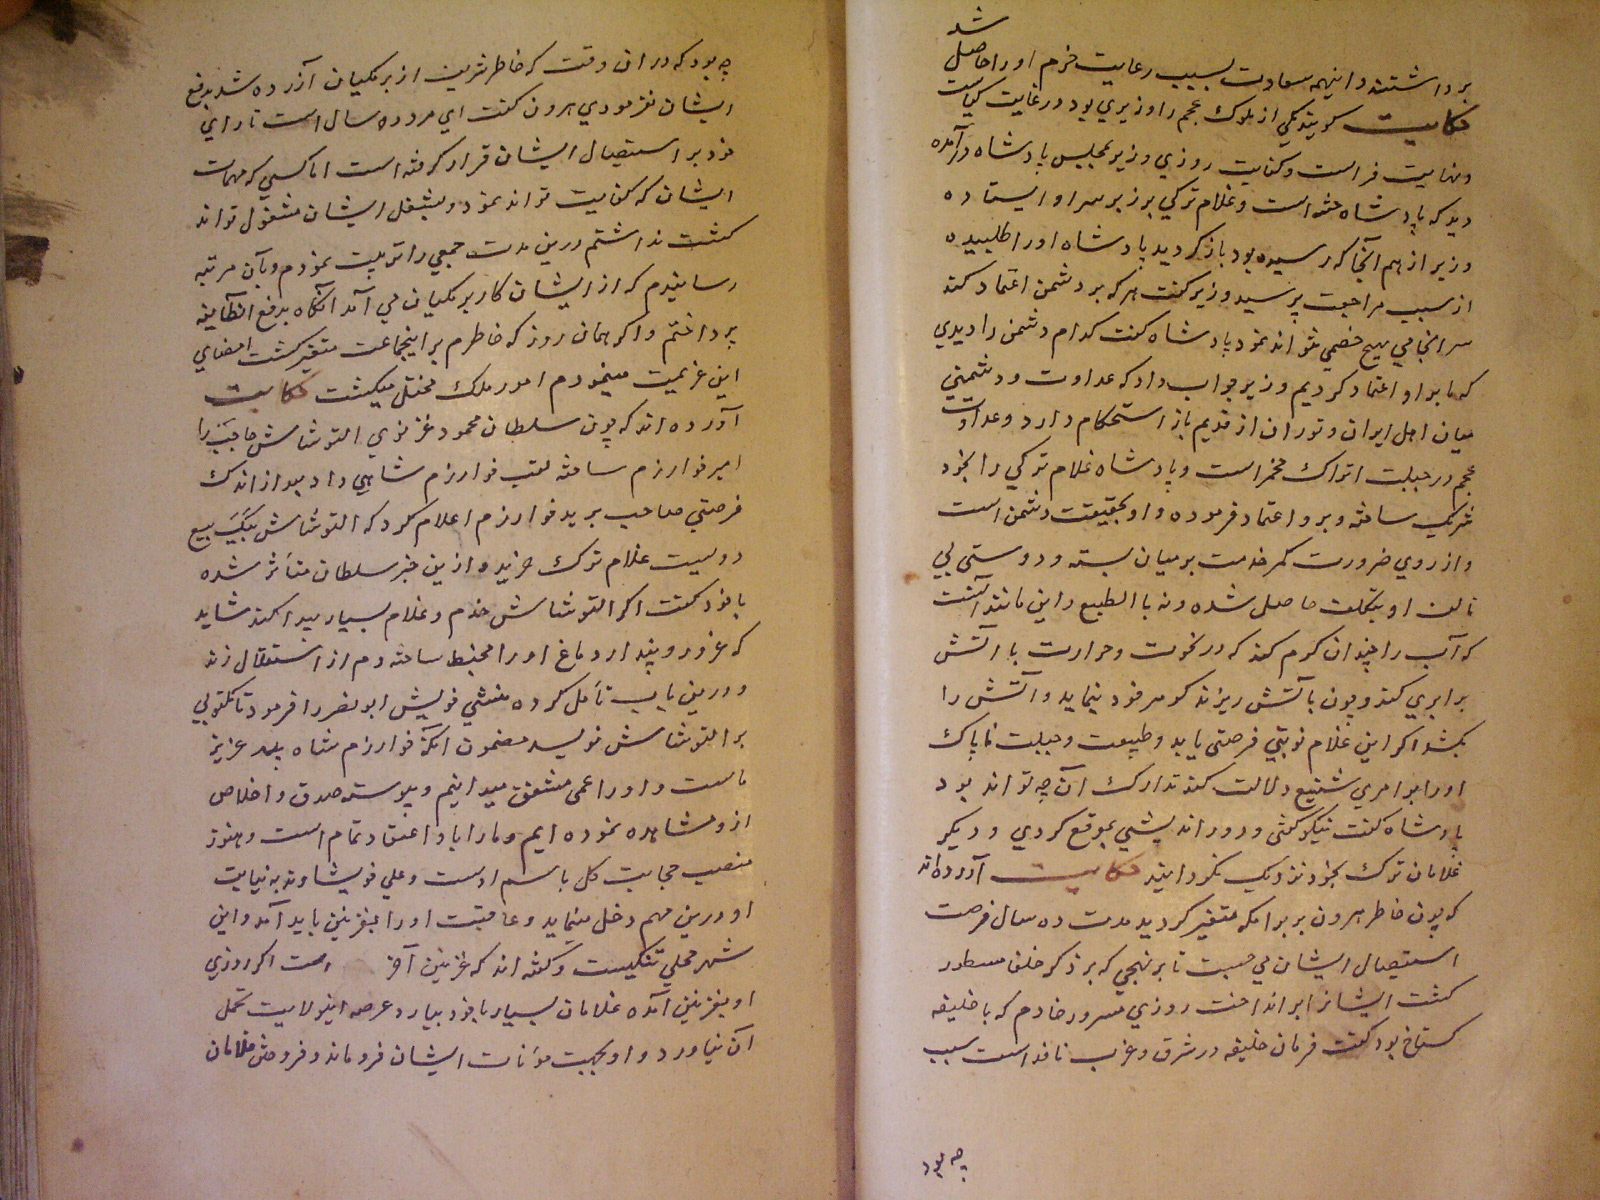 شد
برداشتند و اینهمه سعادت بسبب رعایت حزم او را حاصل
حکایت کویند یکی از ملوک عجم را وزیری بود در غایت کیاست
و نهایت فراست و کفایت روزی وزیر بمجلس پادشاه درآمده
دید که پادشاه خفته است و غلام ترکی بر زبر سر او ایستاده
وزیر از هم آنجا که رسیده بود باز کردید پادشاه او را طلبیده
از سبب مراجعت پرسید وزیر کفت هر که بر دشمن اعتماد کند
سرانجامی هیچ خصمی نتواند نمود پادشاه کفت کدام دشمن را دیدی
که ما بر او اعتماد کردیم وزیر جواب داد که عداوت و دشمنی
میان اهل ایران و توران از قدیم باز استحکام دارد و عداوت
عجم در جبلت اتراک مخمر است و پادشاه غلام ترکی را بخود
شریک ساخته و برو اعتماد فرموده و او بحقیقت دشمن است
و از روی ضرورت کمر خدمت بر میان بسته و دوستی بی
تالف او بتکلف حاصل شده و نه با الطبع و این مانند آنست
که آب را چندان کرم کنند که در نخوت و حرارت با آتش
برابری کند و چون بآتش ریزند کوهر خود بنماید و آتش را
بکشد اکر این غلام نوبتی فرصتی یابد و طبیعت و جبلت ناپاک
او را بر امری شنیع دلالت کند تدارک آن چه تواند بود
پادشاه کفت نیکو کفتی و دور اندیشی بموقع کردی و دیکر
غلامان ترک بخود نزدیک نکردانید حکایت آورده‌اند
که چون خاطر هرون بر برامکه متغیر کردید مدت ده سال فرصت
استیصال ایشان می جست تا بر نهجی که بر ذکر خلف مسطور
کشت ایشانرا برانداخت روزی مسرور خادم که با خلیفه
کستاخ بود کفت فرمان خلیفه در شرق و غرب نافذ است سبب
چه بود
چه بود که در ان وقت که خاطر شریف از برمکیان آزرده شد بدفع
ایشان نفرمودی هرون کفت ای مرد ده سال است تا رای
خود بر استیصال ایشان قرار کرفته است اما کسی که مهمات
ایشان که کفایت تواند نمود و بشغل ایشان مشغول تواند
کشت نداشتم درین مدت جمعی را تربیت نمودم و بآن مرتبه
رسانیدم که از ایشان کار برمکیان می آمد آنکاه بدفع انطایفه
پرداختم و اکر همان روز که خاطرم بر اینجماعت متغیر کشت امضای
این عزیمت مینمودم امور ملک مختل میکشت حکایت
آورده اند که چون سلطان محمود غزنوی التونتاش حاجب را
امیر خوارزم ساخته لقب خوارزم شاهی داد بعد از اندک
فرصتی صاحب برید خوارزم اعلام کرد که التونتاش بیک بیع
دویست غلام ترک خرید و ازین خبر سلطان متأثر شده
با خود کفت اکر التونتاش خدم و غلام بسیار پیدا کند شاید
که غرور و پندار دماغ او را مخبط ساخته دم از استقلال زند
و درین باب تأمل کرده منشی خویش ابو نصر را فرمود تا مکتوبی
بر التونتاش نویسد مضمون انکه خوارزم شاه بجد عزیز
ماست و او را عمی مشفق میدانیم و پیوسته صدق و اخلاص
ازو مشاهده نموده ایم و ما را باو اعتقاد تمام است و هنوز
منصب حجابت کل باسم اوست و علی خویشاوند به نیابت
او درین مهم دخل مینماید و عاقبت او را بغزنین باید آمد و این
شهر محلی تنکیست و کفته اند که غزنین آخر است اکر روزی
او بغزنین آمده غلامان بسیار با خود بیارد عرصه اینولایت تحمل
آن نیاورد و او بجهت مؤنات ایشان فروماند و فروختن غلامان